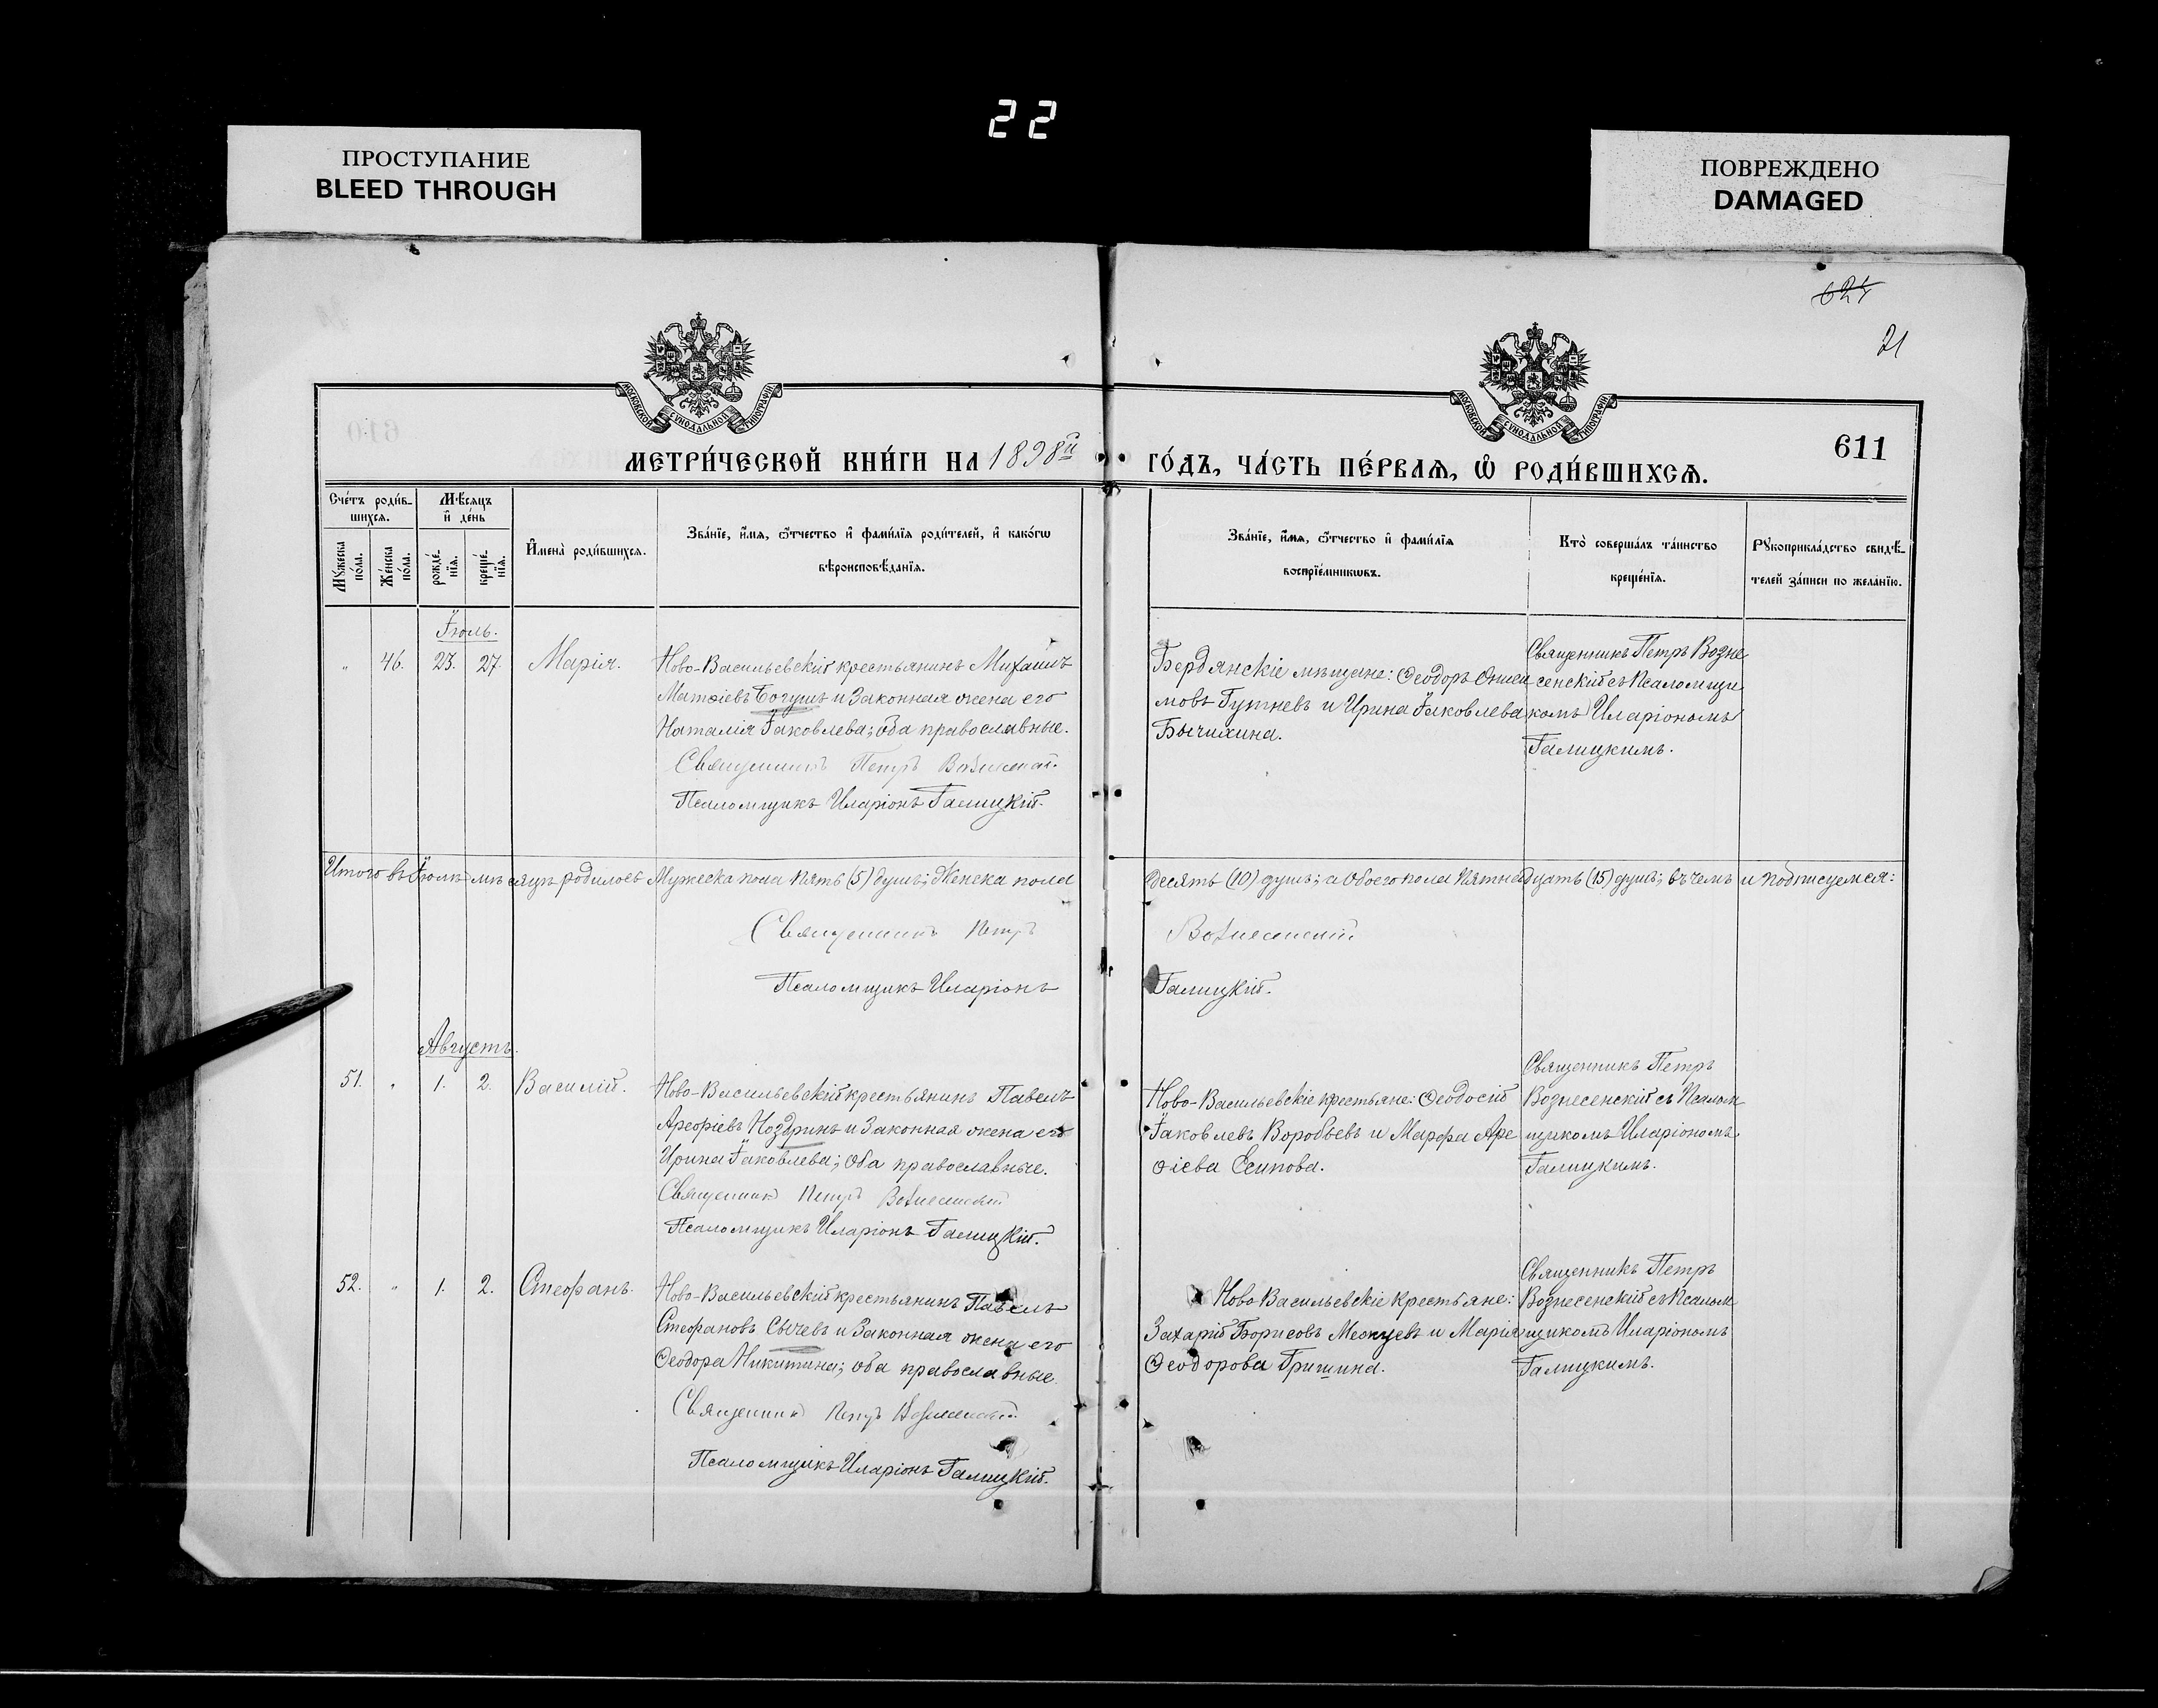 22
ПРОСТУПАНИЕ
BLEED THROUGH
ПОВРЕЖДЕНО
DAMAGED
21
МОСКОВСКОЙ СѴНОДАЛЬНОЙ ТИПОГРАФІИ
МОСКОВСКОЙ СѴНОДАЛЬНОЙ ТИПОГРАФІИ
611
МЕТРИ́ЧЕСКОЙ КНИ́ГИ НА 1898й ГО́ДЪ, ЧА́СТЬ ПЕ́РВАѦ, Ѡ҆ РОДИ́ВШИХСѦ.
Сче́тъ роди́в-
шихсѧ.
Мѣ́сѧцъ
и҆ де́нь
Мꙋ́жеска
по́ла.
Же́нска
по́ла.
рожде́-
нїѧ.
креще́-
нїѧ.
И҆мена̀ роди́вшихсѧ.
Зва́нїе, и҆́мѧ, ѻ҆́тчество и҆ фами́лїѧ роди́телей, и҆ како́гѡ
вѣроисповѣ́данїѧ.
Зва́нїе, и҆́мѧ, ѻ҆́тчество и҆ фами́лїѧ
воспрїе́мникѡвъ.
Кто̀ соверша́лъ та́инство
креще́нїѧ.
Рꙋкоприкла́дство свидѣ́-
телей за́писи по жела́нїю.
Іюль.
" 46. 23. 27. Марія.
Ново-Васильевскій крестьянинъ Михаилъ
Матѳіевъ Богушъ и Законная жена его
Наталія Іаковлева; оба православные.
Священникъ Петръ Вознесенскій
Псаломщикъ Иларіонъ Галицкій.
Бердянскіе мѣщане: Ѳеодоръ
мовъ Гутневъ и Ирина Іаковлева
Бычихина.
Священникъ Петръ Возне
сенскій съ Псаломщи
комъ Иларіономъ
Галицкимъ.
Итого въ Іюлѣ мѣсяцѣ родилось Мужеска пола Пять (5) душъ; Женска пола десять (10) душъ; а Обоего пола Пятнадцать (15) душъ; въ чемъ и подписуемся:
Священникъ Петръ Вознесенскій
Псаломщикъ Иларіонъ Галицкій.
Августъ.
51. " 1. 2. Василій.
Ново-Васильевскій крестьянинъ Павелъ
Ареѳіевъ Ноздринъ и Законная жена его
Ирина Іаковлева; Оба православные.
Священникъ Петръ Вознесенскій
Псаломщикъ Иларіонъ Галицкій.
Ново-Васильевскіе крестьяне: Ѳеодосій
Іаковлевъ Воробьевъ и Марфа Аре
ѳіева Есипова.
Священникъ Петръ
Вознесенскій съ Псалом
щикомъ Иларіономъ
Галицкимъ.
52. " 1. 2. Стефанъ.
Ново-Васильевскій крестьянинъ Павелъ
Стефановъ Сычевъ и Законная жена его
Ѳеодора Никитина; оба православные.
Священникъ Петръ Вознесенскій
Псаломщикъ Иларіонъ Галицкій.
Ново Васильевскіе крестьяне:
Захарій Борисовъ и Марія
Ѳеодорова Гришина.
Священникъ Петръ
Вознесенскій съ Псалом
щикомъ Иларіономъ
Галицкимъ.